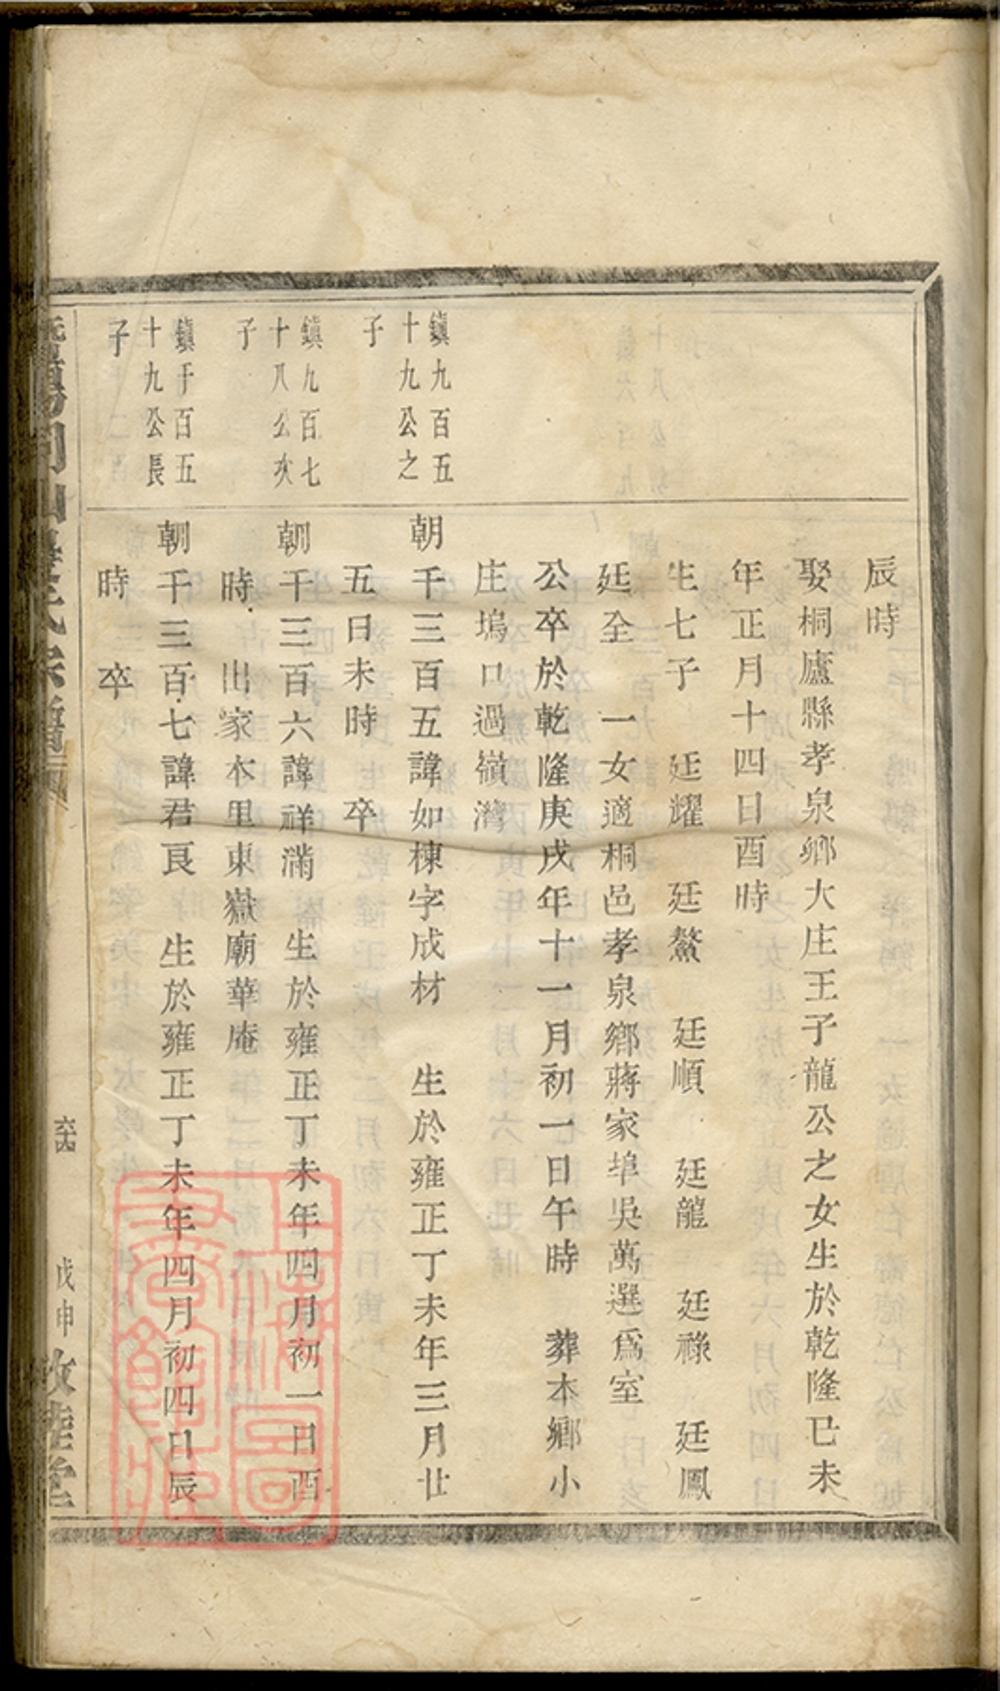 辰時
娶桐廬縣孝泉鄉大庄王子龍公之女生於乾隆已未
年正月十四日酉時
生七子 廷耀 廷鰲 廷順 廷龍 廷祿 廷鳳
廷全 一女適桐邑孝泉鄉蔣家埠吳萬選爲室
公卒於乾隆庚戌年十一月初一日午時 葬本鄉小
庄塢口過嶺灣
鎮九百五
十九公之
子
朝千三百五諱如棟字成材 生於雍正丁未年三月廿
五日未時 卒
鎮九百七
十八公次
子
朝千三百六諱祥滿 生於雍正丁未年四月初一日酉
時 出家本里東嶽廟華庵
鎮千百五
十九公長
子
朝千三百七諱君良 生於雍正丁未年四月初四日辰
時 卒
氏宗譜
戊申 敦睦堂
上海圖
書館藏